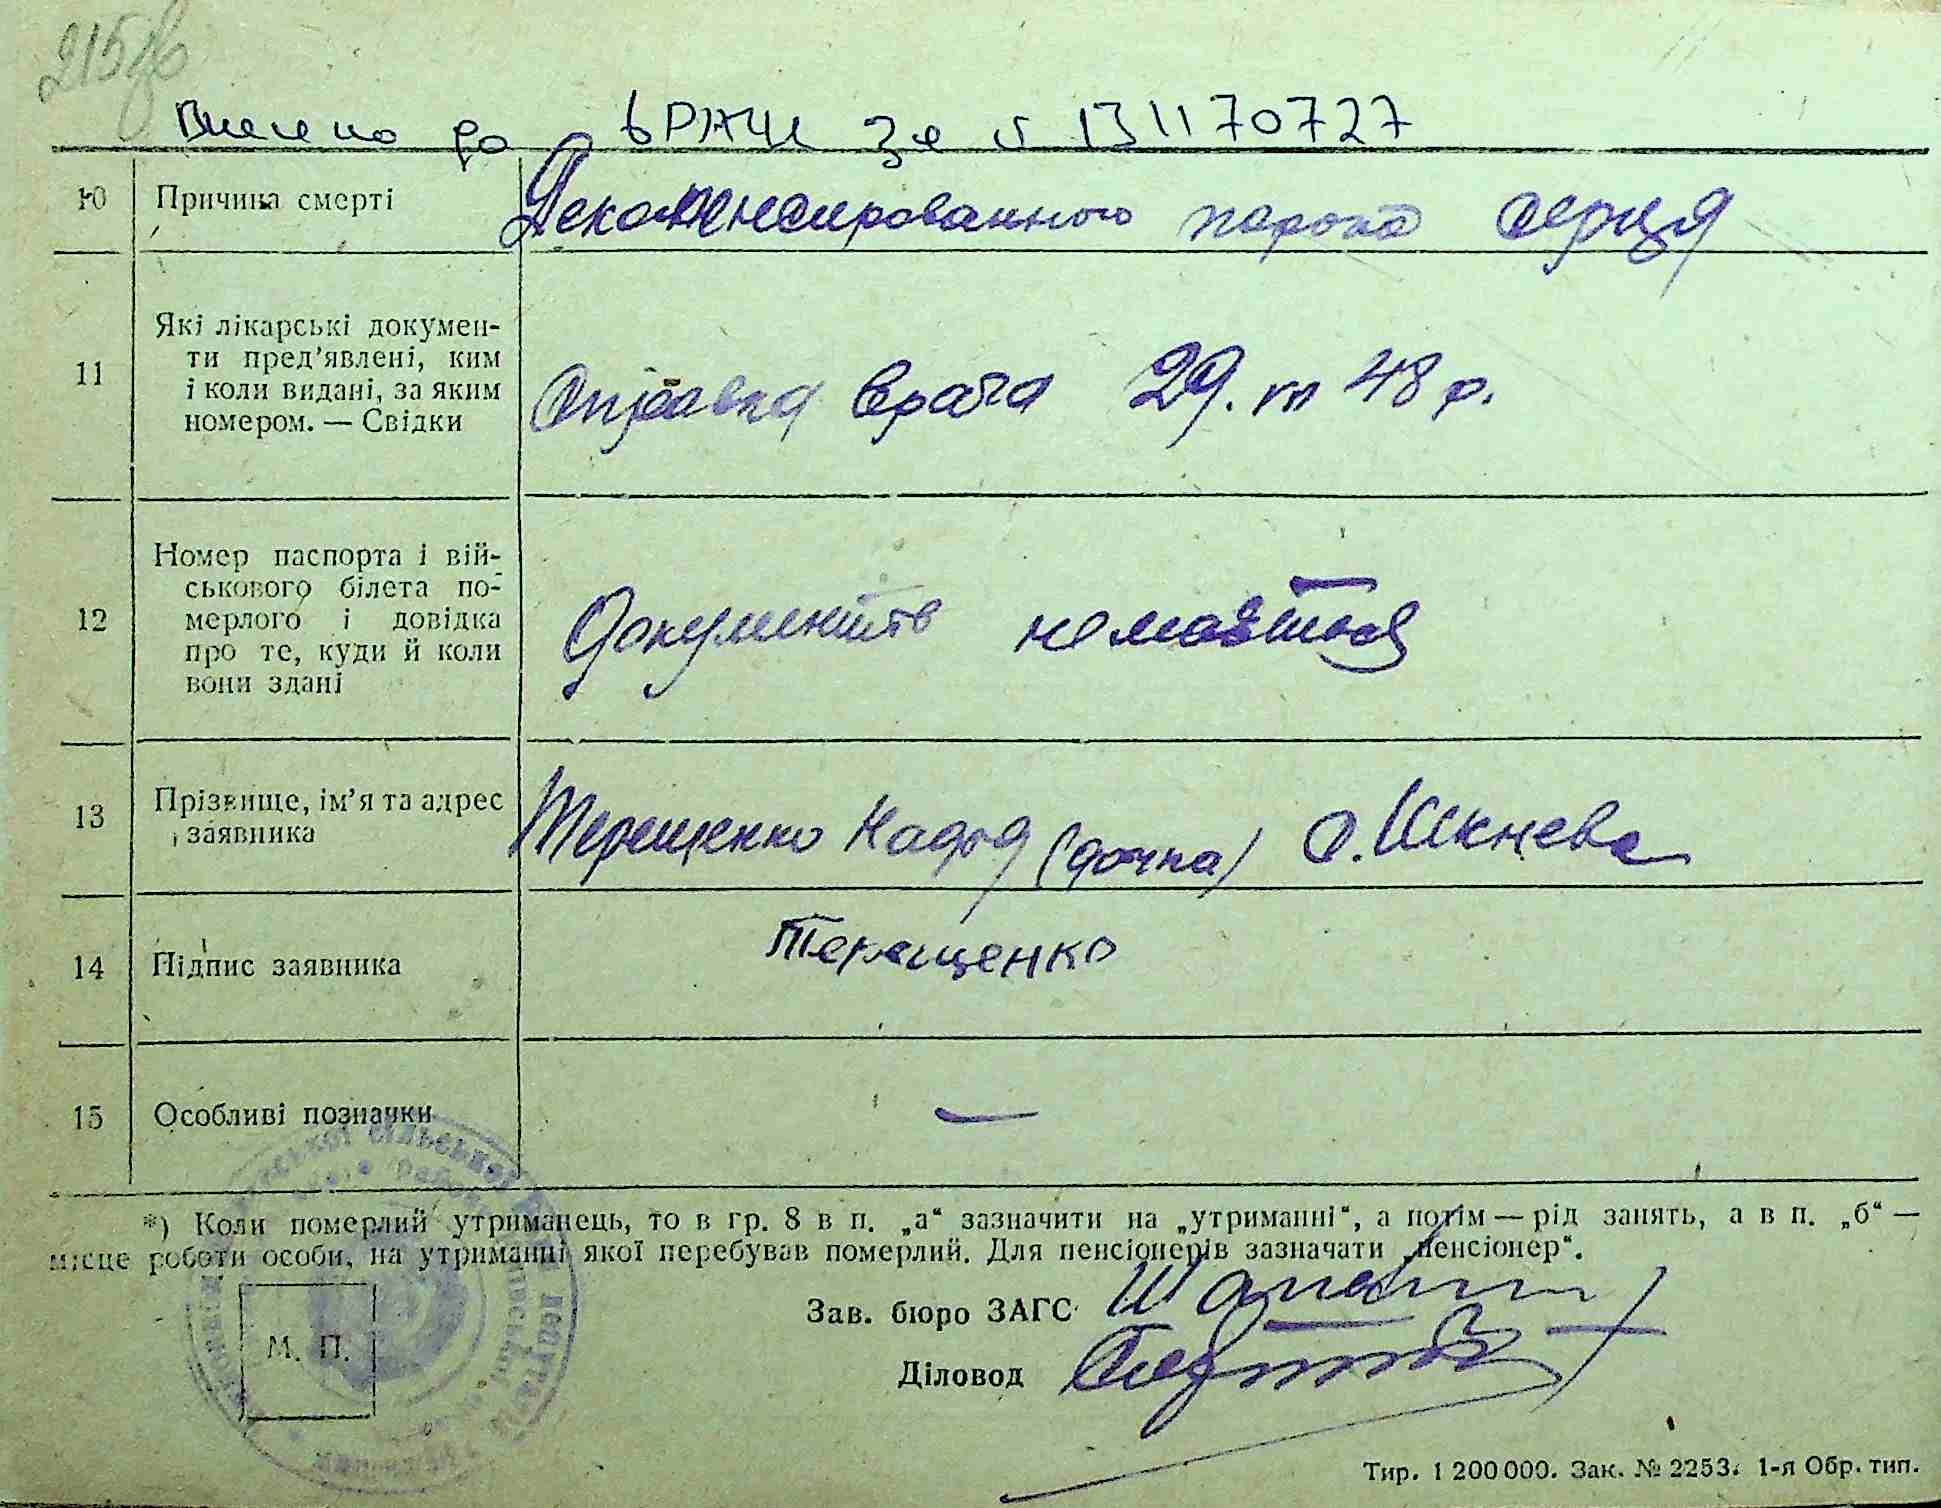 215зв
Внесено до ДРАЦС за № 13117 0727
10 Причина смерті Декомпенсированного порока серця
11 Які лікарські докумен-
ти пред'явлені, ким
і коли видані, за яким
номером. — Свідки
Справка врача 29. III 48 р.
12 Номер паспорта і вій-
ськового білета по-
мерлого і довідка
про те, куди й коли
вони здані
Документів немається
13 Прізвище, ім'я та адрес
заявника
Терещенко Надія (дочка) с. Шкнева
14 Підпис заявника Терещенко
15 Особливі позначки —
*) Коли померлий утриманець, то в гр. 8 в п. „а“ зазначити на „утриманні“, а потім — рід занять, а в п. „б“ —
місце роботи особи, на утриманні якої перебував померлий. Для пенсіонерів зазначати „пенсіонер“.
Зав. бюро ЗАГС
М. П.
Діловод
Тир. 1 200 000. Зак. № 2253. 1-я Обр. тип.